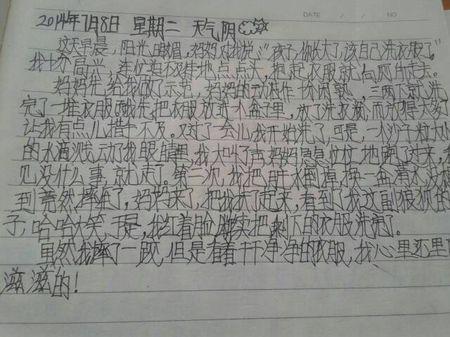 DATE / / NO
2014年7月8日 星期二 天气阴
这天早晨,阳光明媚,妈妈对我说:“孩子,你长大了,该自己洗衣服了。”
我十分高兴,连忙迫不及待地点点头,抱起衣服就右厕所走去。
妈妈先给我做了示范,妈妈的动作,三两下就洗
完了一堆衣服。我先把衣服放到水盆里,放了洗衣液,而放得太
让我有点儿措手不及。过了会儿我开始洗了,可是,一少子粒大
的水滴溅动了我眼睛里,我大叫了声妈妈急急忙忙地跑了过来,看
见没什么事,就走了。第二次,我把脏水倒掉换一盆清水,没
到竟然摔倒了,妈妈来了,把我扶了起来,看到了我这副狼狈的
子,哈哈大笑,于是,我红着脸继续把剩下的衣服洗完了。
虽然我摔了一跤,但是看着干净净的衣服,我心里还里
滋滋的!